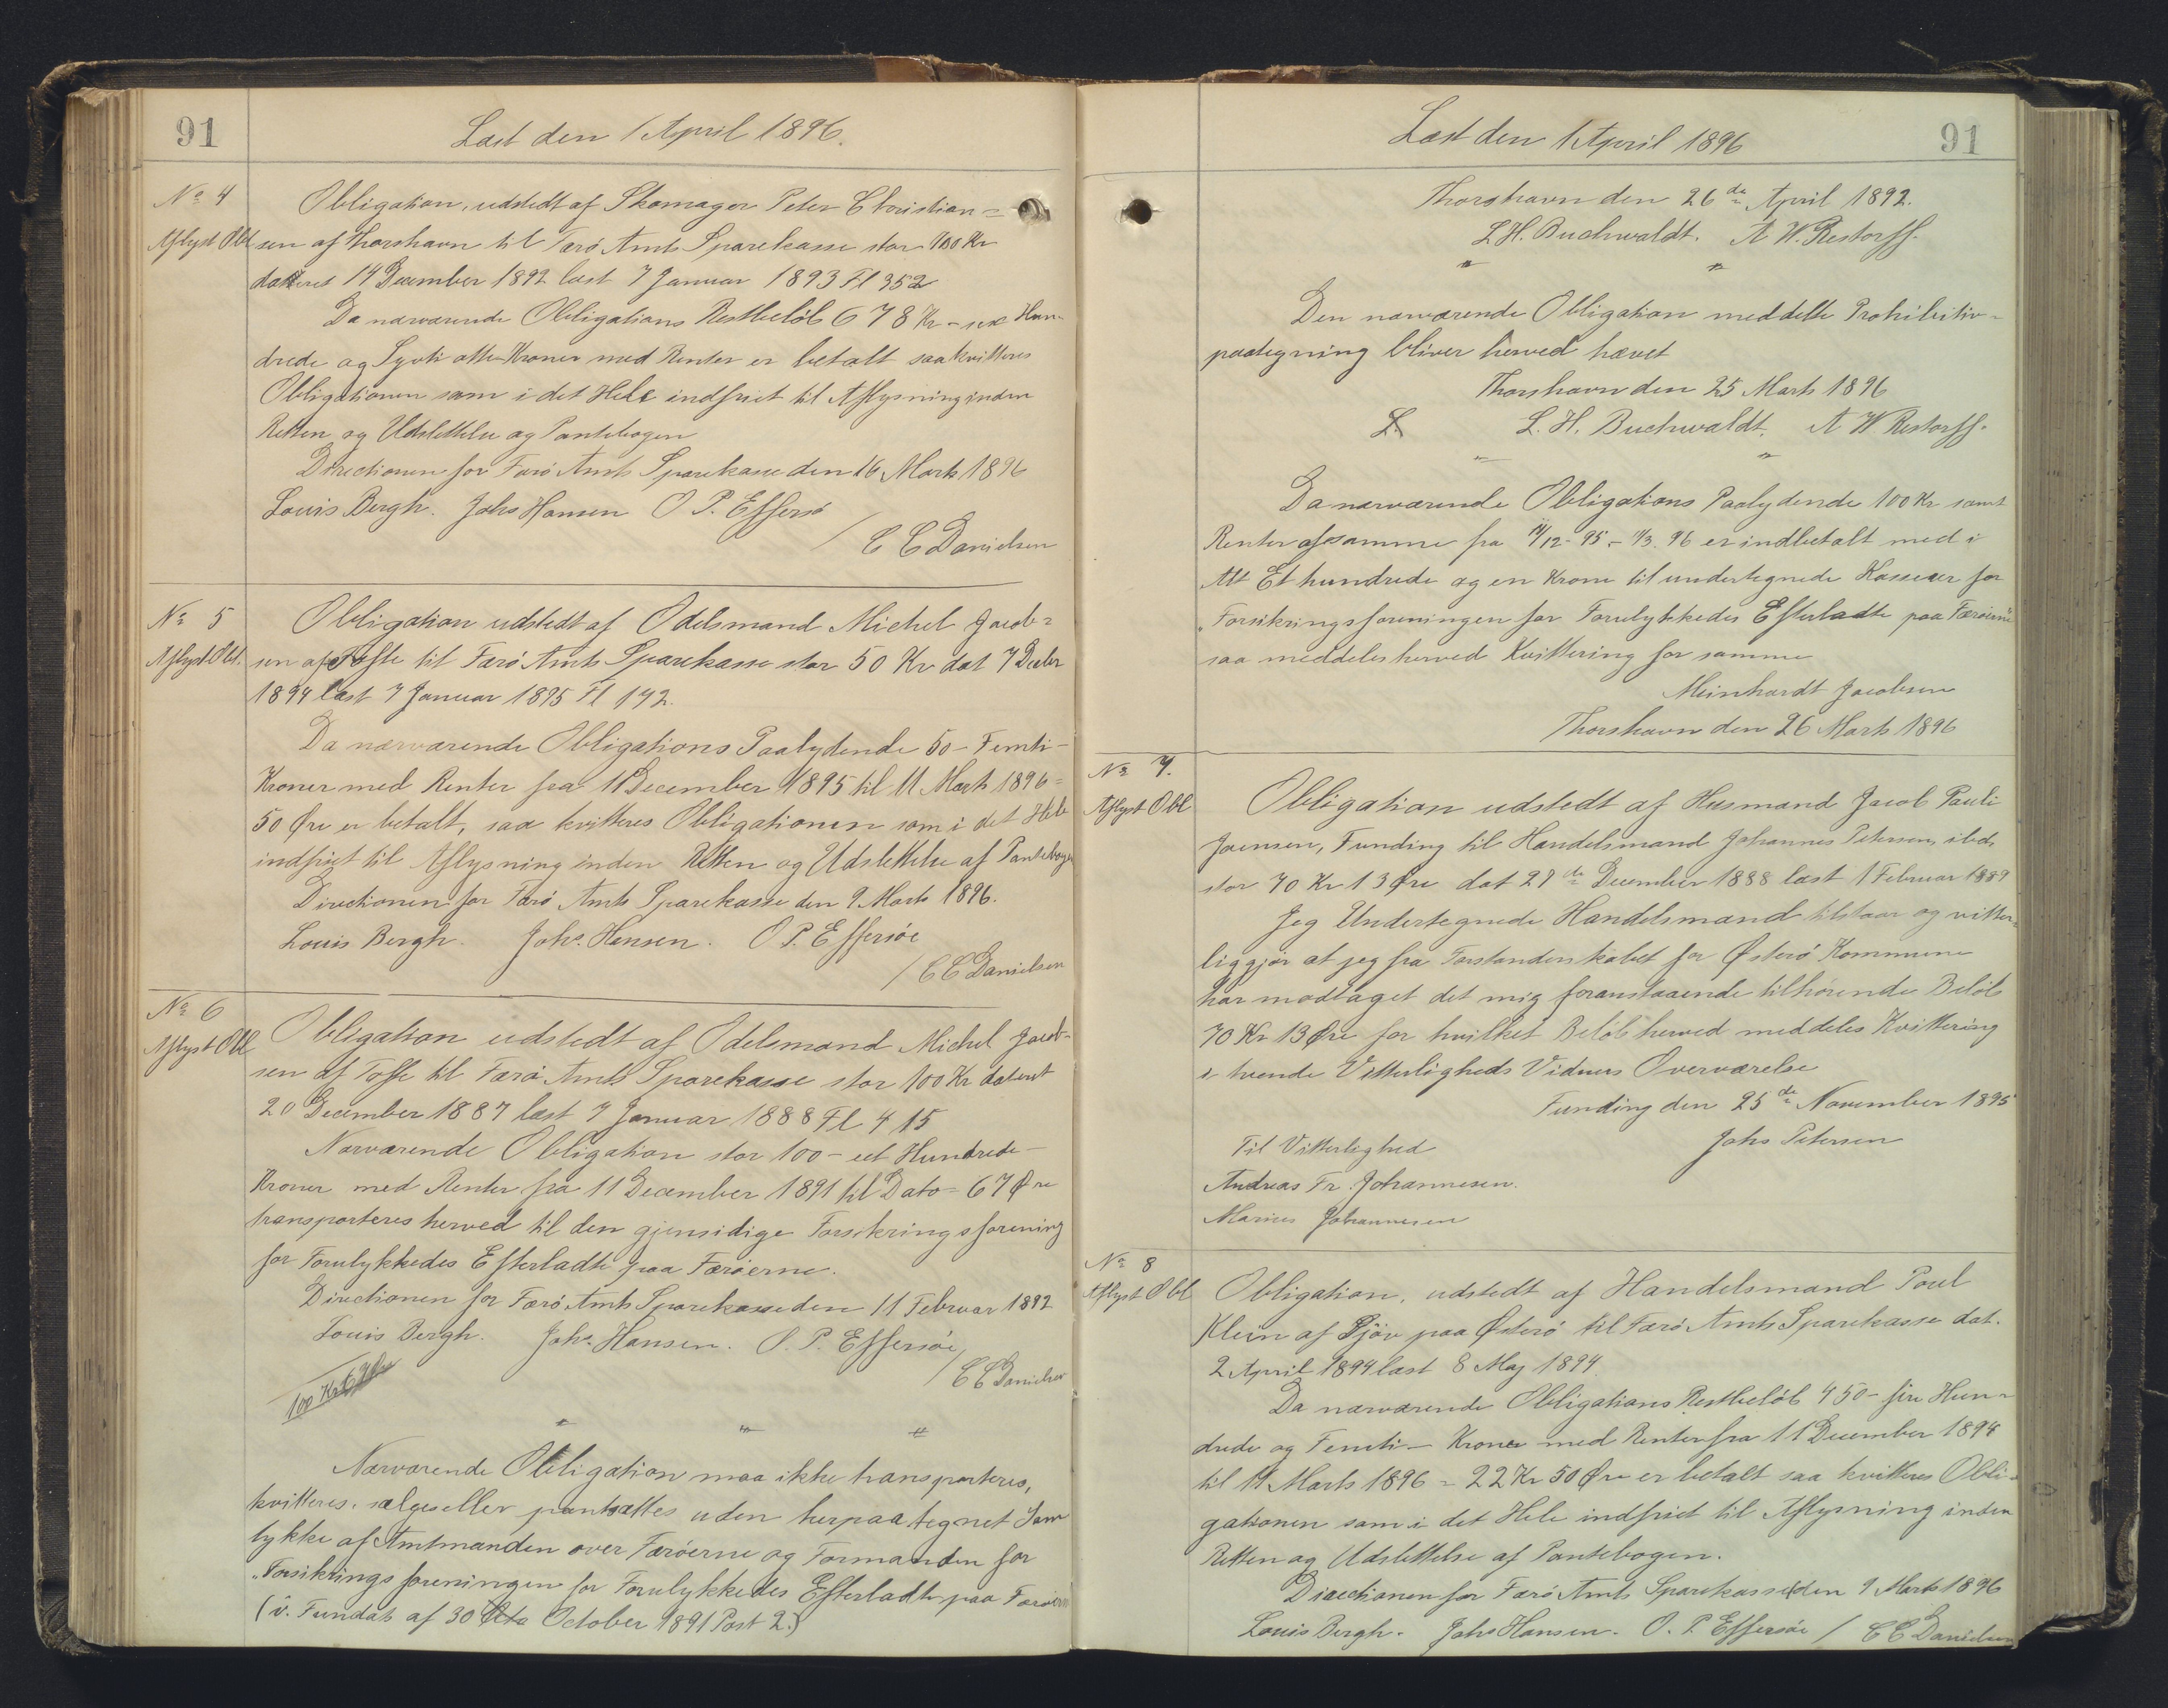 91
Læst den 1 April 1896.
No 4
Aflyst Obl
Obligation, udstedt af Skomager Peter Christian=
sen af Thorshavn til Færö Amts Sparekasse stor 700 Kr
dateret 14 December 1892 læst 7 Januar 1893 Fl 352
Da nærværende Obligations Restbelöb 678 Kr - sex Hun-
drede og Syvti otte Kroner med Renter er betalt saa kvitteres
Obligationen som i det Hele indfriet til Aflysning inden
Retten og Udslettelse og Pantebogen
Directionen for Færö Amts Sparekasse den 16 Marts 1896
Louis Bergh. Johs Hansen O P. Effersö
/ C C Danielsen
No 5
Aflyst Obl.
Obligation udstedt af Odelsmand Michel Jacob=
sen af Tofte til Færö Amts Sparekasse stor 50 Kr dat 7 Decbr
1894 læst 7 Januar 1895 Fl 142.
Da nærværende Obligations Paalydende 50 - Femti -
Kroner med Renter fra 11 December 1895 til 11 Marts 1896 =
50 Øre er betalt, saa kvitteres Obligationen som i det Hele
indfriet til Aflysning inden Retten og Udslettelse af Pantebogen
Directionen for Færö Amts Sparekasse den 9 Marts 1896.
Louis Bergh. Johs. Hansen. O P. Effersöe
/ C C Danielsen
No 6
Aflyst Obl
Obligation udstedt af Odelsmand Michel Jacob-
sen af Tofte til Færö Amts Sparekasse stor 100 Kr dateret
20 December 1887 læst 7 Januar 1888 Fl 415
Nærværende Obligation stor 100 - eet Hundrede -
Kroner med Renter fra 11 December 1891 til Dato = 67 Øre
transporteres herved til den gjensidige Forsikringsforening
for Forulykkedes Efterladte paa Færöerne.
Directionen for Færö Amts Sparekasse den 11 Februar 1892
Louis Bergh. Johs. Hansen. O. P. Effersöe,
/ C C Danielsen
100 Kr 67 Øre
Nærværende Obligation maa ikke transporteres,
kvitteres, sælges eller pantsættes uden herpaa tegnet Sam
tykke af Amtmanden over Færöerne og Formanden for
"Forsikringsforeningen for Forulykkedes Efterladte paa Færöerne
(v. Fundats af 30 October 1891 Post 2.)
Læst den 1 April 1896
91
Thorshavn den 26de April 1892.
L H. Buchwaldt. A W. Restorff.
Den nærværende Obligation meddelte Prohibitiv-
paategning bliver herved hævet
Thorshavn den 25 Marts 1896
L. L. H. Buchwaldt. A W Restorff.
Da nærværende Obligations Paalydende 100 Kr samt
Renter af samme fra 11/12 - 95 - 11/3. 96 er indbetalt med i
Alt Et hundrede og en Krone til undertegnede Kasserer for
"Forsikringsforeningen for Forulykkedes Efterladte paa Færöerne
saa meddeles herved Kvittering for samme
Meinhardt Jacobsen
Thorshavn den 26 Marts 1896
No 7.
Aflyst Obl
Obligation udstedt af Husmand Jacob Pauli
Joensen, Funding til Handelsmand Johannes Petersen, ibd.
stor 70 Kr 13 Øre dat 27de December 1888 læst 1 Februar 1889
Jeg Undertegnede Handelsmand tilstaar og vitter-
liggjör at jeg fra Forstanderskabet for Østerö Kommune
har modtaget det mig foranstaaende tilhörende Belöb
70 Kr 13 Øre for hvilket Belöb herved meddeles Kvittering
i tvende Vitterligheds Vidners Overværelse
Funding den 25de November 1895
Til Vitterlighed Johs Petersen
Andreas Fr. Johannesen.
Marius Johannesen
No 8
Aflyst Obl
Obligation, udstedt af Handelsmand Poul
Klein af Gjöv paa Østerö til Færö Amts Sparekasse dat.
2 April 1894 læst 8 Maj 1894.
Da nærværende Obligations Restbelöb 450 - fire Hun-
drede og Femti - Kroner med Renter fra 11 December 1894
til 11 Marts 1896 = 22 Kr 50 Øre er betalt saa kvitteres Obli-
gationen som i det Hele indfriet til Aflysning inden
Retten og Udslettelse af Pantebogen.
Directionen for Færö Amts Sparekasse den 9 Marts 1896
Louis Bergh. Johs Hansen. O. P. Effersöe / C C Danielsen